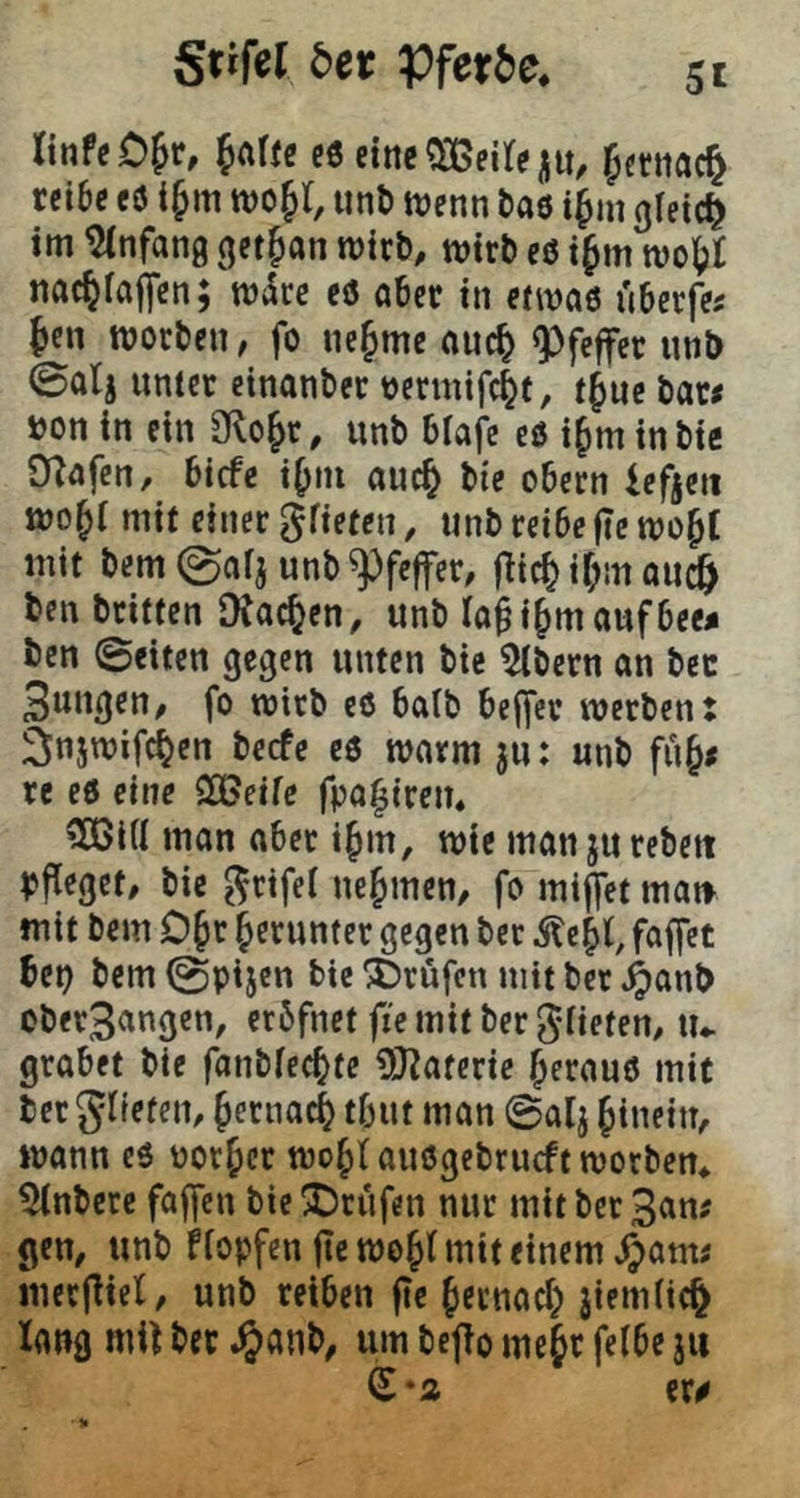 Strifel der Pferde. 51
linke Ohr, halte es eine Weile zu, hernach
reibe es ihm wohl, und wenn das ihm gleich
im Anfang gethan wird, wird es ihm wohl
nachlassen; wäre es aber in etwas überse-
hen worden, so nehme auch Pfeffer und
Salz unter einander vermischt, thue dar-
von in ein Rohr, und blase es ihm in die
Nasen, bicke ihm auch die obern Lefzen
wohl mit einer Flieten, und reibe sie wohl
mit dem Salz und Pfeffer, stich ihm auch
den dritten Rachen, und laß ihm auf bee-
den Seiten gegen unten die Adern an der
Zungen, so wird es bald besser werden:
Inzwischen decke es warm zu: und füh-
re es eine Weile spatziren.
Will man aber ihm, wie man zu reden
pfleget, die Frifel nehmen, so misset man
mit dem Ohr herunter gegen der Kehl, fasset
bey dem Spizen die Drüsen mit der Hand
oder Zangen, eröfnet sie mit der Flieten, u.
grabet die sandlechte Materie heraus mit
der Flieten, hernach thut man Salz hinein,
wann es vorher wohl ausgedruckt worden.
Andere fassen die Drüsen nur mit der Zan-
gen, und klopfen sie wohl mit einem Ham-
merstiel, und reiben sie hernach ziemlich
lang mit der Hand, um desto mehr selbe zu
E 2 er-